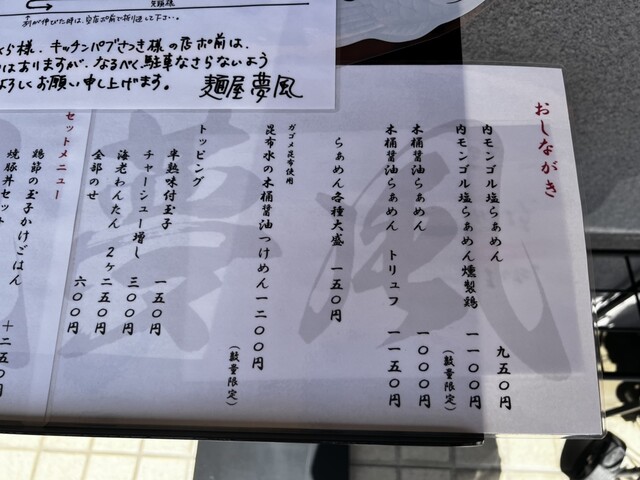 列が伸びた時は、空店舗前で折り返して下さい。
くら様、キッチンパブさつき様の店舗前は、
はありますが、なるべく駐車なさらないよう
よろしくお願い申し上げます。 麺屋夢風
おしながき
内モンゴル塩らぁめん 九五〇円
内モンゴル塩らぁめん燻製鶏 一一〇〇円
(数量限定)
木桶醤油らぁめん 一〇〇〇円
木桶醤油らぁめん トリュフ 一一五〇円
らぁめん各種大盛 一五〇円
ガゴメ昆布使用
昆布水の木桶醤油つけめん 一二〇〇円
(数量限定)
トッピング
半熟味付玉子 一五〇円
チャーシュー増し 三〇〇円
海老わんたん 2ヶ 二五〇円
全部のせ 六〇〇円
セットメニュー
鶏節の玉子かけごはん +二五〇円
焼豚丼セット
夢風